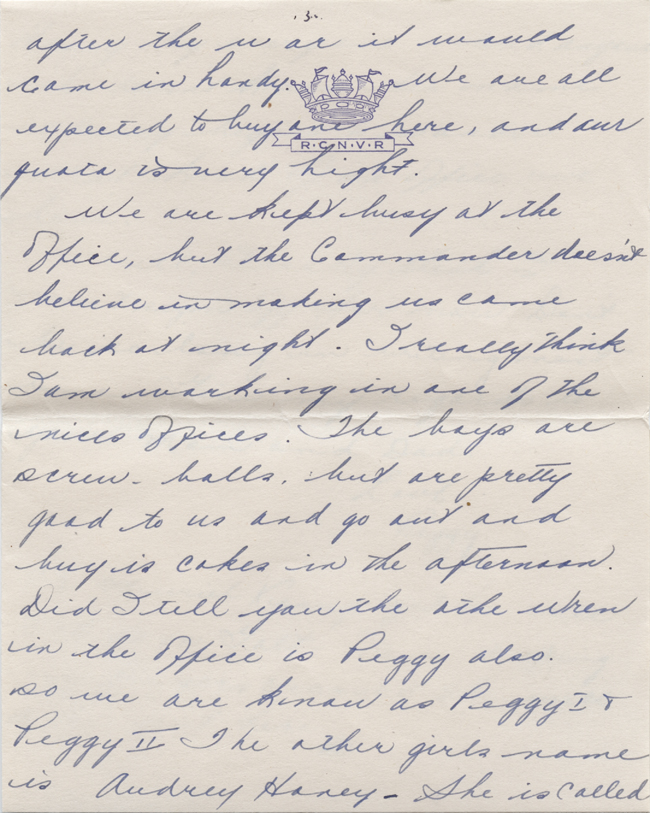 .3.
after the war it would
come in handy. We are all
R·C·N·V·R
expected to buy one here, and our
quota is very hight.
We are kept busy at the
office, but the Commander doesn't
believe in making us come
back at night. I really think
I am working in one of the
nices offices. The boys are
screw-balls, but are pretty
good to us and go out and
buy is cakes in the afternoon.
Did I tell you the othe Wren
in the office is Peggy also.
so we are know as Peggy I &
Peggy II The other girls name
is Audrey Haney - She is called